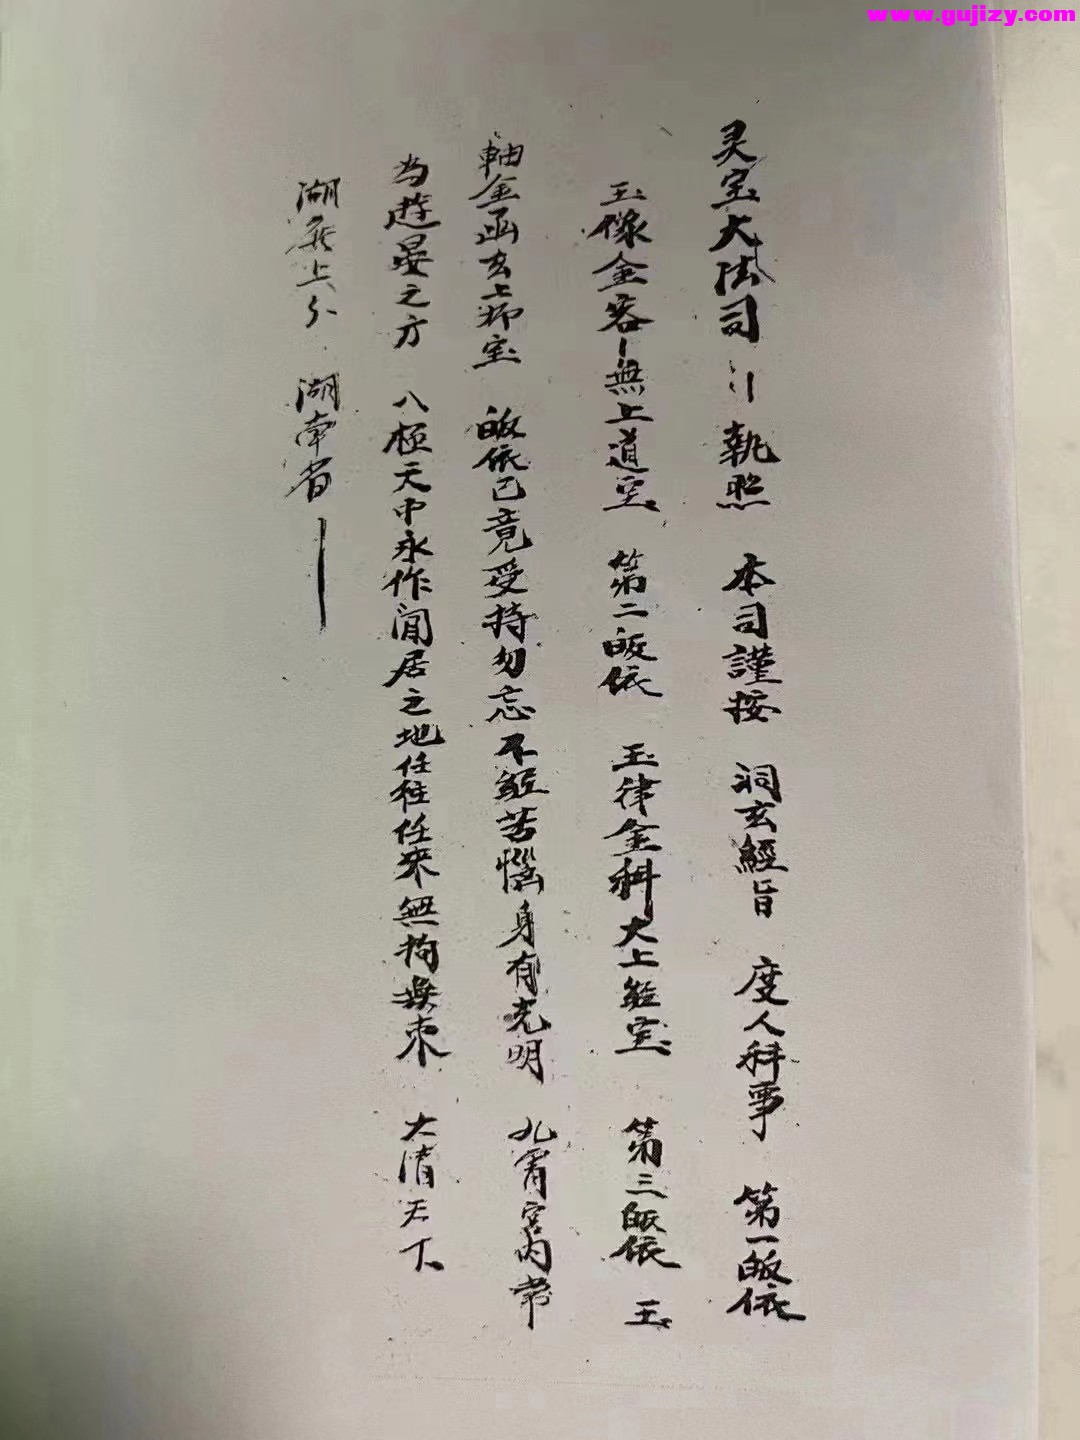 www.gujizy.com
灵宝大法司 执照 本司謹按 洞玄經旨 度人科事 第一皈依
玉像金容 無上道宝 第二皈依 玉律金科大上経宝 第三皈依 玉
軸金函玄上师宝 皈依已竟受持勿忘不経苦惱身有光明 九霄宮内常
为遊晏之方 八極天中永作閒居之地任往任來無拘無束 大清天下
湖 上 湖南省